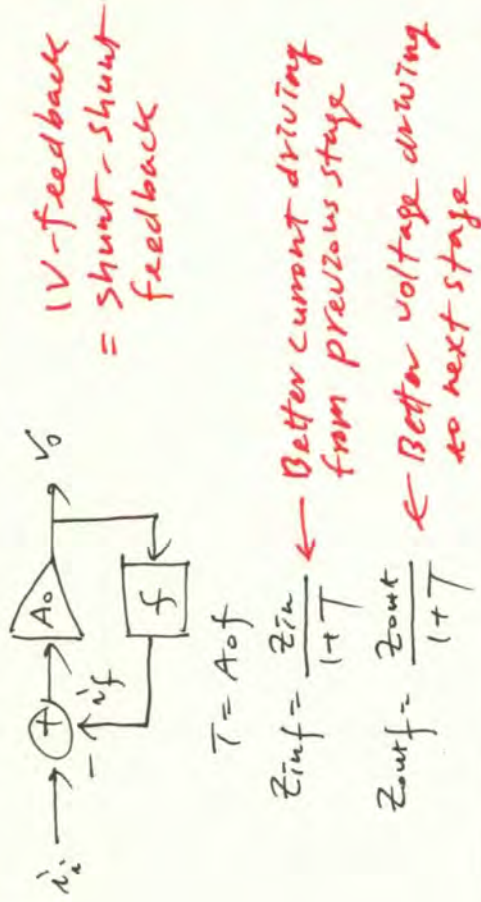 IV-feedback
= shunt-shunt
feedback
A₀
V₀
iᵢ
+
-
i_f
f
T = A₀f
Z_inf = Z_in / (1+T)
← Better current driving
from previous stage
Z_outf = Z_out / (1+T)
← Better voltage driving
to next stage